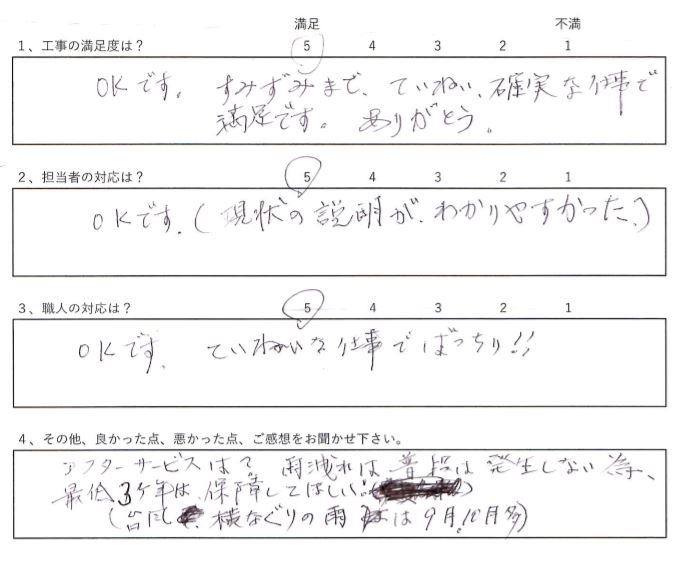 満足 不満
1、工事の満足度は? 5 4 3 2 1
OKです。 すみずみまで、ていねい、確実な仕事で
満足です。 ありがとう。
2、担当者の対応は? 5 4 3 2 1
OKです.(現状の説明が、わかりやすかった、)
3、職人の対応は? 5 4 3 2 1
OKです. ていねいな仕事でばっちり!!
4、その他、良かった点、悪かった点、ご感想をお聞かせ下さい。
アフターサービスは? 雨洩れは普段は発生しない為、
最低3ケ年は、保障してほしい。
(台風 横なぐりの雨は9月,10月多)